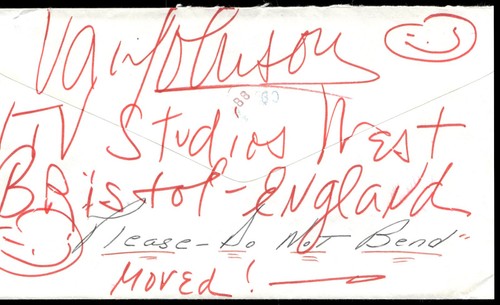 Van Johnson
ITV Studios West
Bristol-England
Please-Do Not Bend"
Moved!